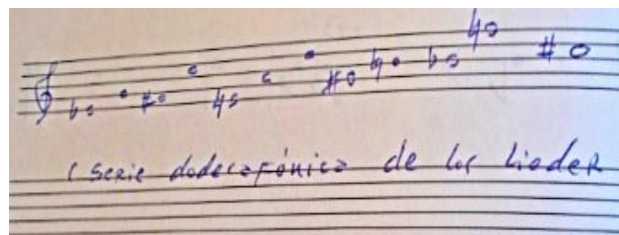 ( serie dodecafónica de los Lieder